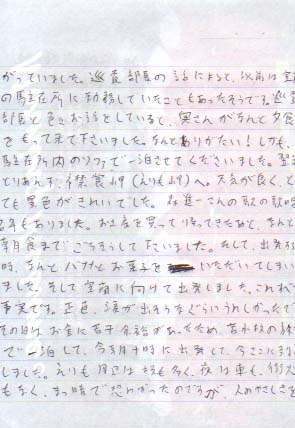 がっていました。巡査部長の話によると、以前は室
の駐在所に勤務していたこともあったそうです。巡査
部長と色々お話をしていると、奥さんがなんと夕食
をもって来て下さいました。なんとありがたい！しかも、
駐在所内のソファで一泊させてくださいました。翌
とりあえず、襟裳岬（えりも岬）へ。天気が良く、と
ても景色がきれいでした。森進一さんの歌の歌碑
もありました。お土産を買って待ってきたあと、なんと
朝食までごちそうして下さいました。そして、出発の
時、なんとバナナとお菓子を いただいてしまい
ました。そして室蘭に向けて出発しました。これが
事実です。正直、涙が出そうなぐらいうれしかったで
その日は、お金に若干余裕があったため、苫小牧の
で一泊して、今朝十時に出発して、今ここに
しました。えりも周辺は坂も多く、夜は車も、街灯
もなく、まっ暗で恐かったのですが、人のやさしさを